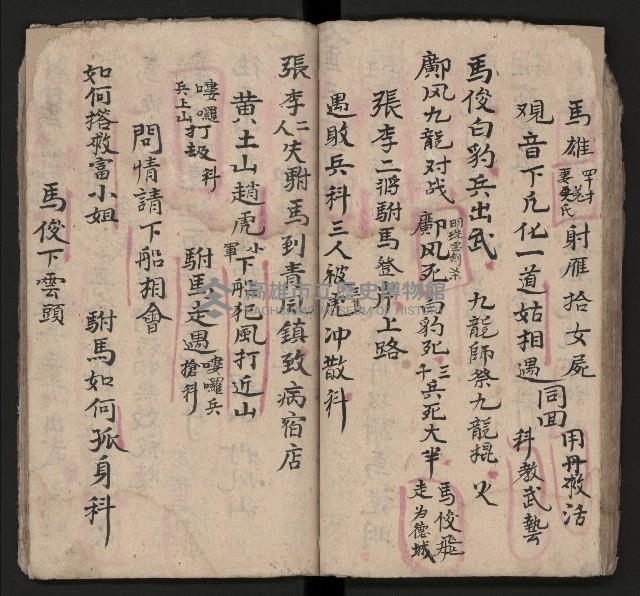 馬雄 射雁拾女屍 用丹救活
观音下凡化一道姑相遇同回 科教武藝
馬俊白豹兵出武 九龍師祭九龍棍 火
鄺风九龍对战 鄺风死 白豹死 三千兵死大半 馬俊飛走为德城
張李二將駙馬登岸上路
遇敗兵科三人被虎冲散科
張李二人夫駙馬到青風鎮致病宿店
黄土山趙虎小軍下船狂風打近山
嘍囉兵上山打刼科 駙馬走遇嘍囉兵搶科
問情請下船相會
如何搭救富小姐 駙馬如何孤身科
馬俊下雲頭
高雄市立歷史博物館
KAOHSIUNG MUSEUM OF HISTORY